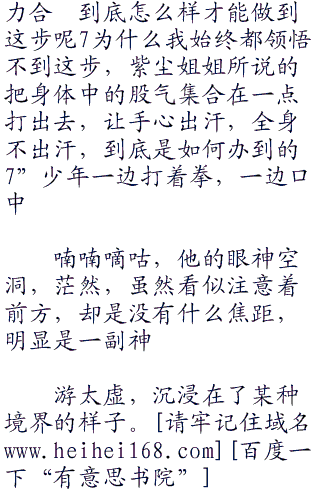 力合　到底怎么样才能做到
这步呢7为什么我始终都领悟
不到这步，紫尘姐姐所说的
把身体中的股气集合在一点
打出去，让手心出汗，全身
不出汗，到底是如何办到的
7”少年一边打着拳，一边口
中
喃喃嘀咕，他的眼神空
洞，茫然，虽然看似注意着
前方，却是没有什么焦距，
明显是一副神
游太虚，沉浸在了某种
境界的样子。[请牢记住域名
www.heihei168.com][百度一
下“有意思书院”]